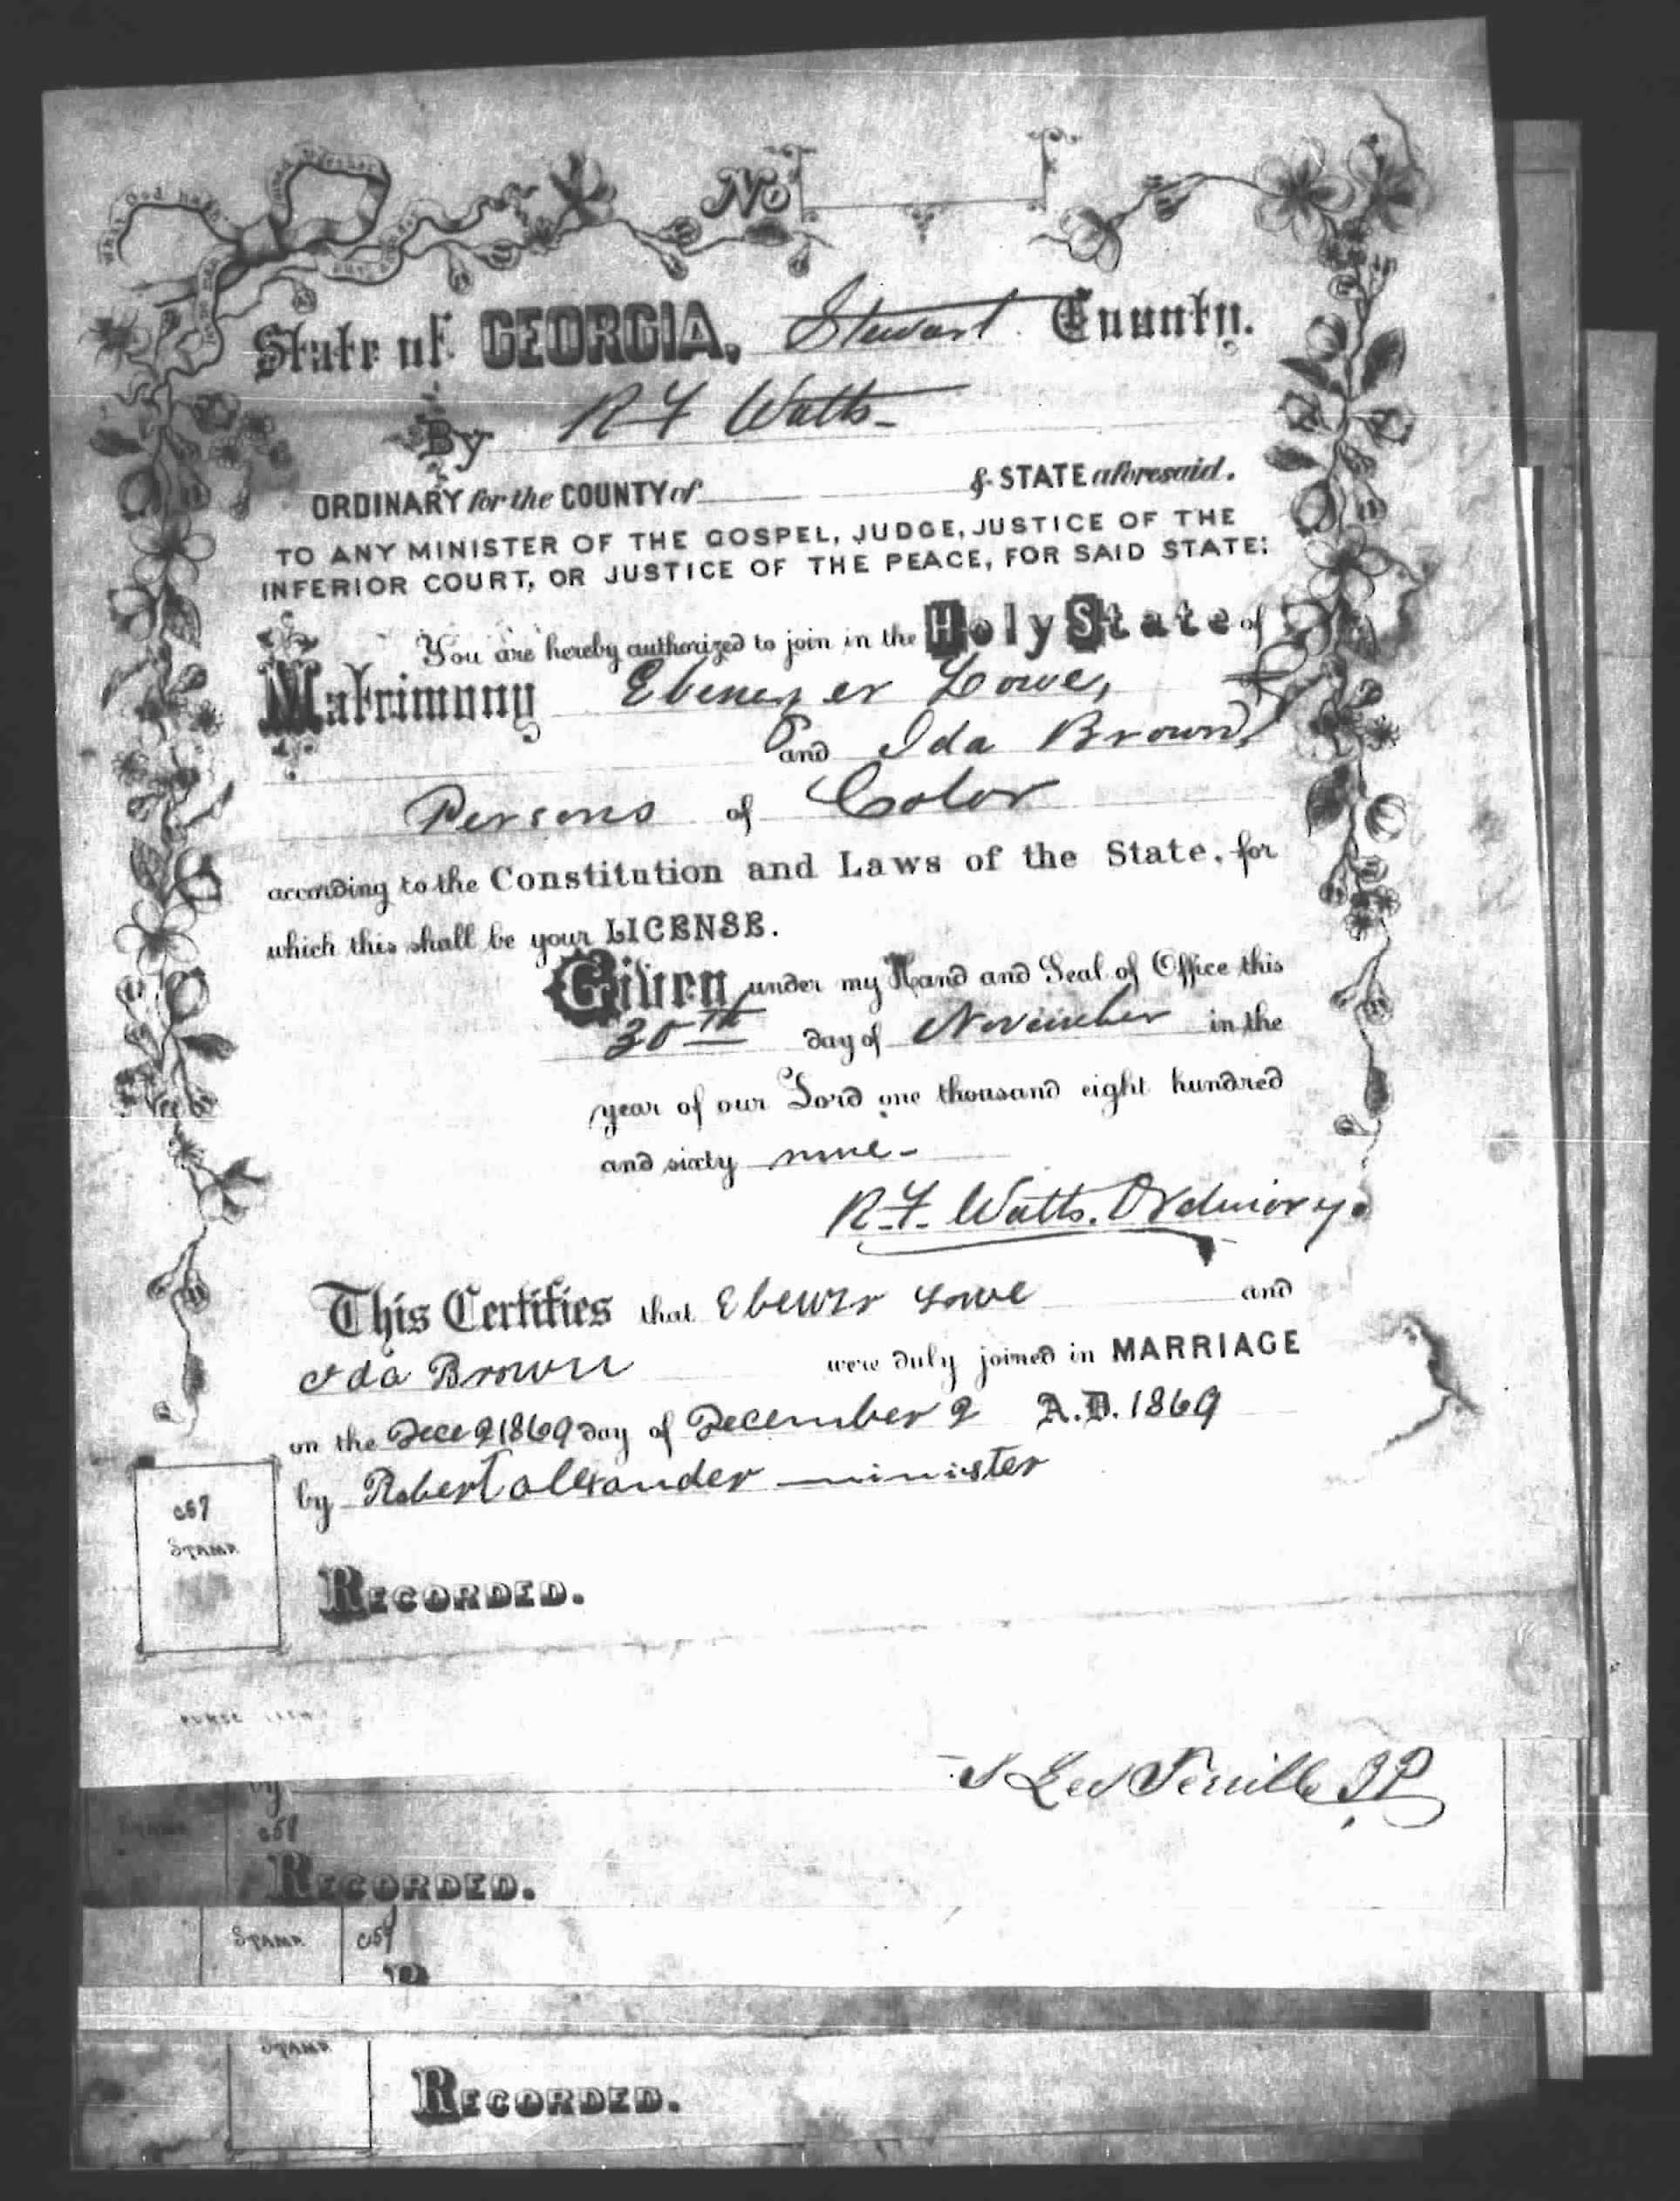 What God hath joined together
let no man put asunder
No
State of GEORGIA, Stewart County.
By R F Watts-
ORDINARY for the COUNTY of & STATE aforesaid.
TO ANY MINISTER OF THE GOSPEL, JUDGE, JUSTICE OF THE
INFERIOR COURT, OR JUSTICE OF THE PEACE, FOR SAID STATE:
You are hereby authorized to join in the Holy State of
Matrimony Ebenezer Lowe,
and Ida Brown,
Persons of Color
according to the Constitution and Laws of the State, for
which this shall be your LICENSE.
Given under my Hand and Seal of Office this
30th day of November in the
year of our Lord one thousand eight hundred
and sixty nine-
R.F. Watts. Ordinary.
This Certifies that Ebenzr Lowe and
Ida Brown were duly joined in MARRIAGE
on the Dece 2 1869 day of December 2 A.D. 1869
by Robert alexander minister
c57
STAMP
RECORDED.
by
J P
STAMP
c58
RECORDED.
STAMP c59
STAMP
RECORDED.